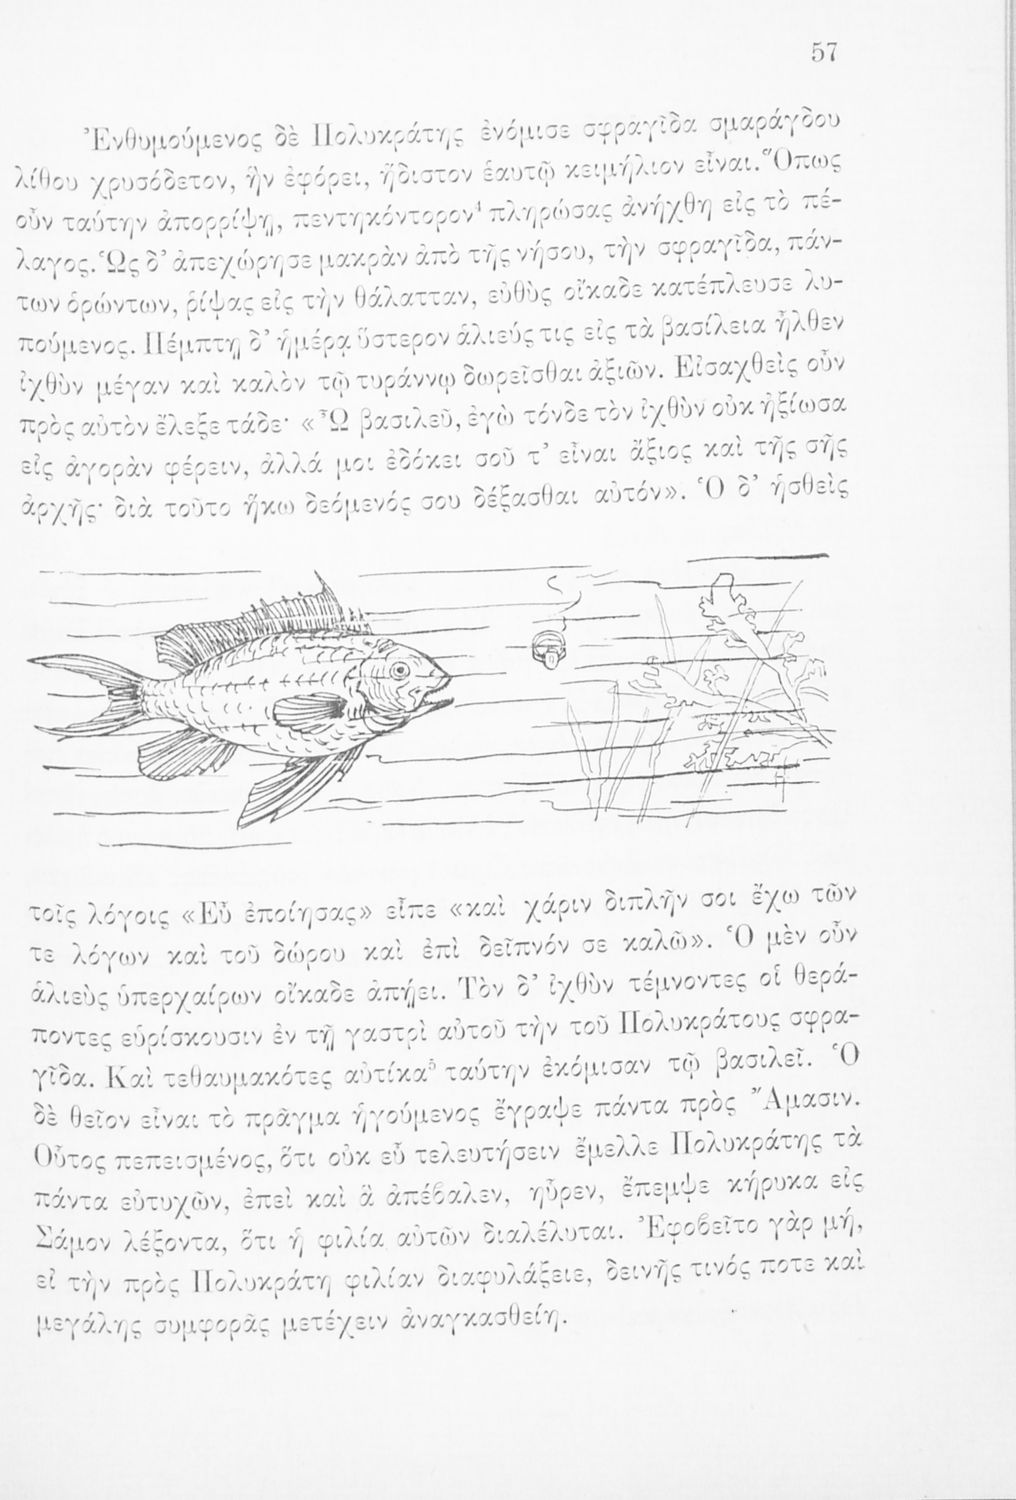 57
Ἐνθυμούμενος δὲ Πολυκράτης ἐνόμισε σφραγῖδα σμαράγδου
λίθου χρυσόδετον, ἣν ἐφόρει, ἥδιστον ἑαυτῷ κειμήλιον εἶναι. Ὅπως
οὖν ταύτην ἀπορρίψῃ, πεντηκόντορον⁴ πληρώσας ἀνήχθη εἰς τὸ πέ-
λαγος. Ὡς δ’ ἀπεχώρησε μακρὰν ἀπὸ τῆς νήσου, τὴν σφραγῖδα, πάν-
των ὁρώντων, ῥίψας εἰς τὴν θάλατταν, εὐθὺς οἴκαδε κατέπλευσε λυ-
πούμενος. Πέμπτῃ δ’ ἡμέρᾳ ὕστερον ἁλιεύς τις εἰς τὰ βασίλεια ἦλθεν
ἰχθὺν μέγαν καὶ καλὸν τῷ τυράννῳ δωρεῖσθαι ἀξιῶν. Εἰσαχθεὶς οὖν
πρὸς αὐτὸν ἔλεξε τάδε· «Ὦ βασιλεῦ, ἐγὼ τόνδε τὸν ἰχθὺν οὐκ ἠξίωσα
εἰς ἀγορὰν φέρειν, ἀλλά μοι ἐδόκει σοῦ τ’ εἶναι ἄξιος καὶ τῆς σῆς
ἀρχῆς· διὰ τοῦτο ἥκω δεόμενός σου δέξασθαι αὐτόν». Ὁ δ’ ἡσθεὶς
τοῖς λόγοις «Εὖ ἐποίησας» εἶπε «καὶ χάριν διπλῆν σοι ἔχω τῶν
τε λόγων καὶ τοῦ δώρου καὶ ἐπὶ δεῖπνόν σε καλῶ». Ὁ μὲν οὖν
ἁλιεὺς ὑπερχαίρων οἴκαδε ἀπῄει. Τὸν δ’ ἰχθὺν τέμνοντες οἱ θερά-
ποντες εὑρίσκουσιν ἐν τῇ γαστρὶ αὐτοῦ τὴν τοῦ Πολυκράτους σφρα-
γῖδα. Καὶ τεθαυμακότες αὐτίκα⁵ ταύτην ἐκόμισαν τῷ βασιλεῖ. Ὁ
δὲ θεῖον εἶναι τὸ πρᾶγμα ἡγούμενος ἔγραψε πάντα πρὸς Ἄμασιν.
Οὗτος πεπεισμένος, ὅτι οὐκ εὖ τελευτήσειν ἔμελλε Πολυκράτης τὰ
πάντα εὐτυχῶν, ἐπεὶ καὶ ἃ ἀπέβαλεν, ηὗρεν, ἔπεμψε κήρυκα εἰς
Σάμον λέξοντα, ὅτι ἡ φιλία αὐτῶν διαλέλυται. Ἐφοβεῖτο γὰρ μή,
εἰ τὴν πρὸς Πολυκράτη φιλίαν διαφυλάξειε, δεινῆς τινός ποτε καὶ
μεγάλης συμφορᾶς μετέχειν ἀναγκασθείη.